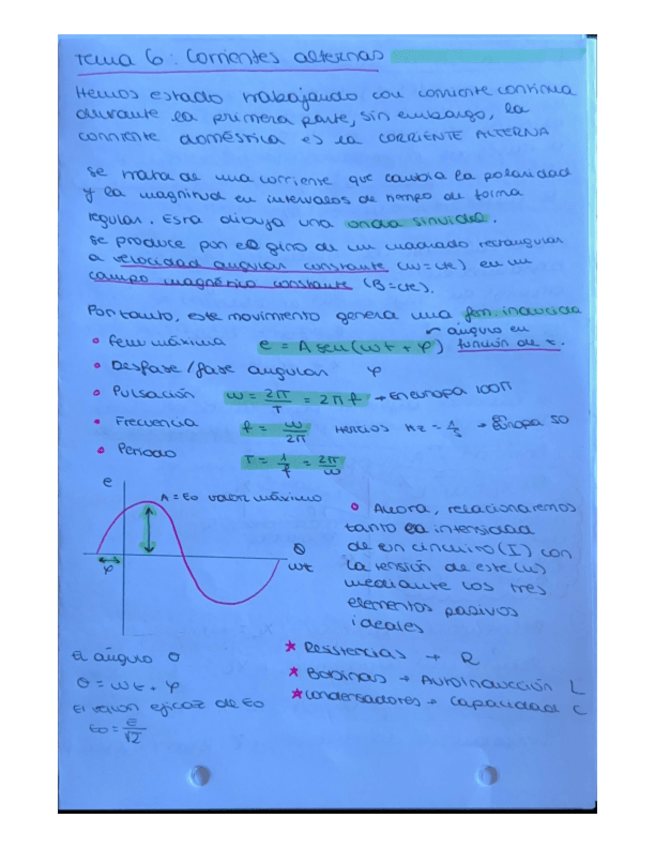 Tema 6: Corrientes alternas
Hemos estado trabajando con corriente continua
durante la primera parte, sin embargo, la
corriente doméstica es la CORRIENTE ALTERNA
se trata de una corriente que cambia la polaridad
y la magnitud en intervalos de tiempo de forma
regular. Esta dibuja una onda sinuidal.
se produce por el giro de un cuadrado rectangular
a velocidad angular constante (w=cte) en un
campo magnético constante (B=cte).
Por tanto, este movimiento genera una fem. inducida
ángulo en
fem máxima e = A sen(wt + φ) función de t.
Desfase/fase angular φ
Pulsación w = 2π/T = 2πf → En europa 100π
Frecuencia f = w/2π Hercios Hz = 1/s → en Europa 50
Periodo T = 1/f = 2π/w
e
A = Eo valor máximo
θ
wt
φ
Ahora, relacionaremos
tanto la intensidad
de un circuito (I) con
la tensión de este (u)
mediante los tres
elementos pasivos
ideales
* Resistencias → R
* Bobinas → Autoinducción L
* Condensadores → Capacidad C
El ángulo θ
θ = wt + φ
El valor eficaz de Eo
Eo = E/√2